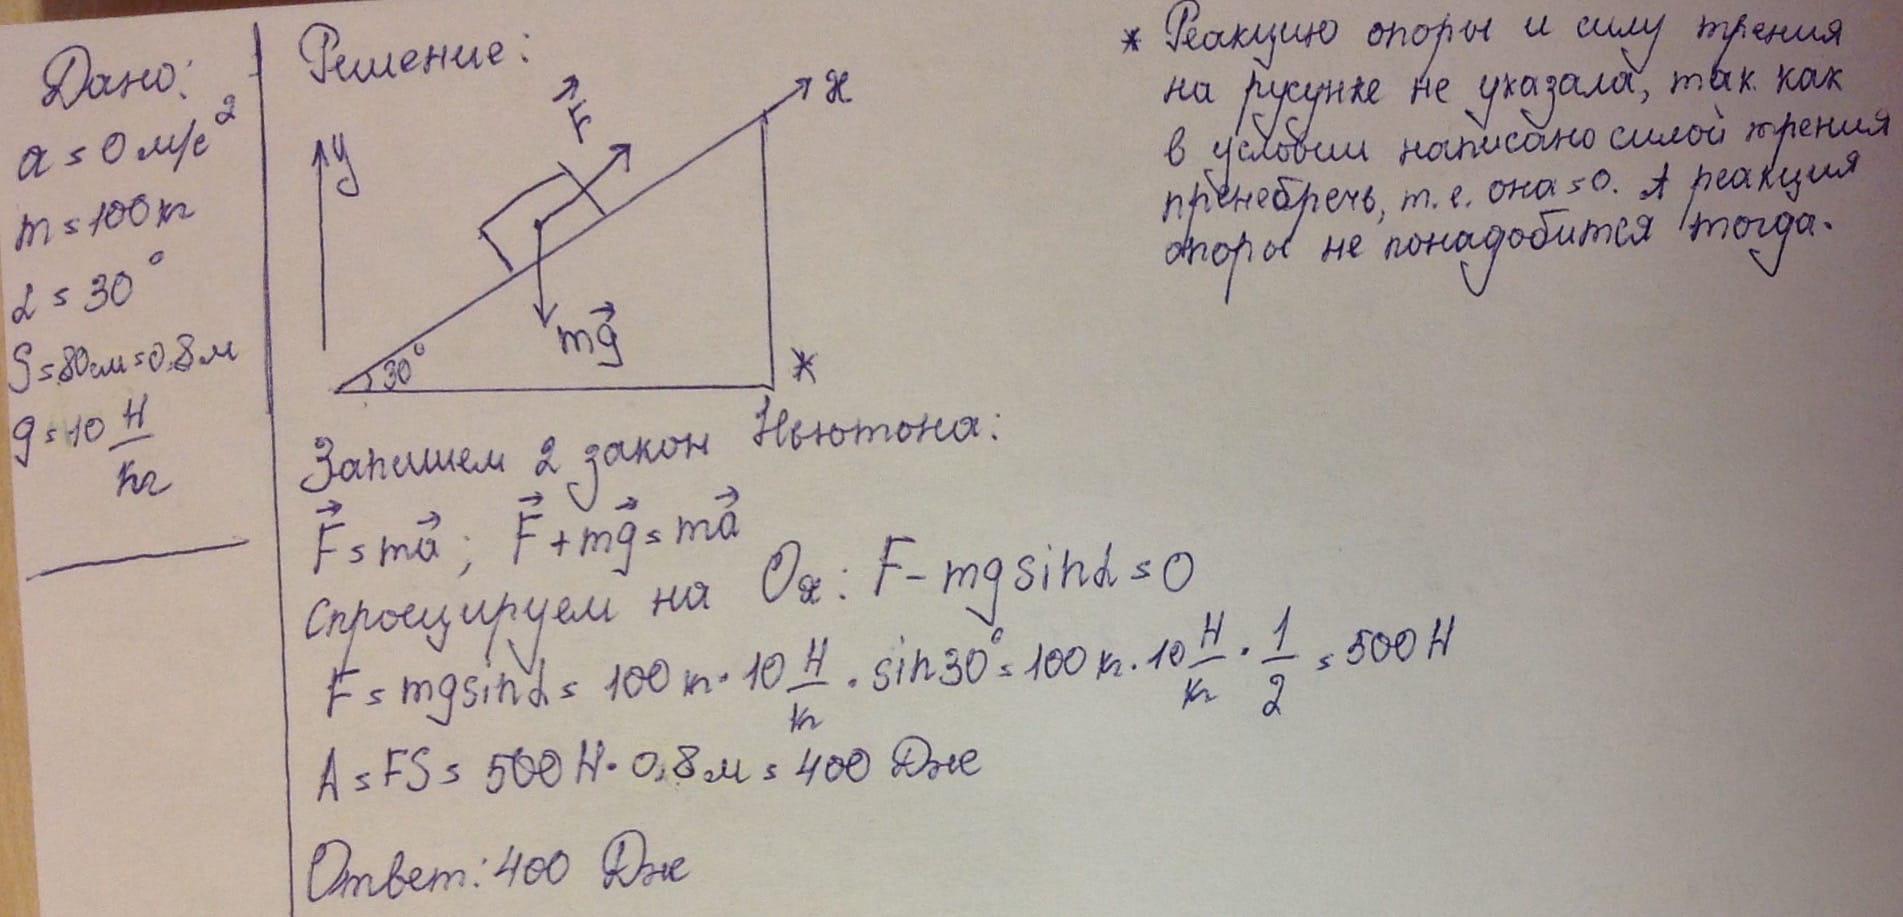 Дано:
a = 0 м/с²
m = 100 кг
α = 30°
S = 80 см = 0,8 м
g = 10 Н/кг
Решение:
y
F
x
mg
30°
*
* Реакцию опоры и силу трения
на русунке не указала, так как
в условии написано силой трения
пренебречь, т.е. она = 0. А реакция
опоры не понадобится тогда.
Запишем 2 закон Ньютона:
F = ma; F + mg = ma
Спроецируем на Ox: F - mg sinα = 0
F = mg sinα = 100 кг · 10 Н/кг · sin30° = 100 кг · 10 Н/кг · 1/2 = 500 Н
A = FS = 500 Н · 0,8 м = 400 Дж
Ответ: 400 Дж